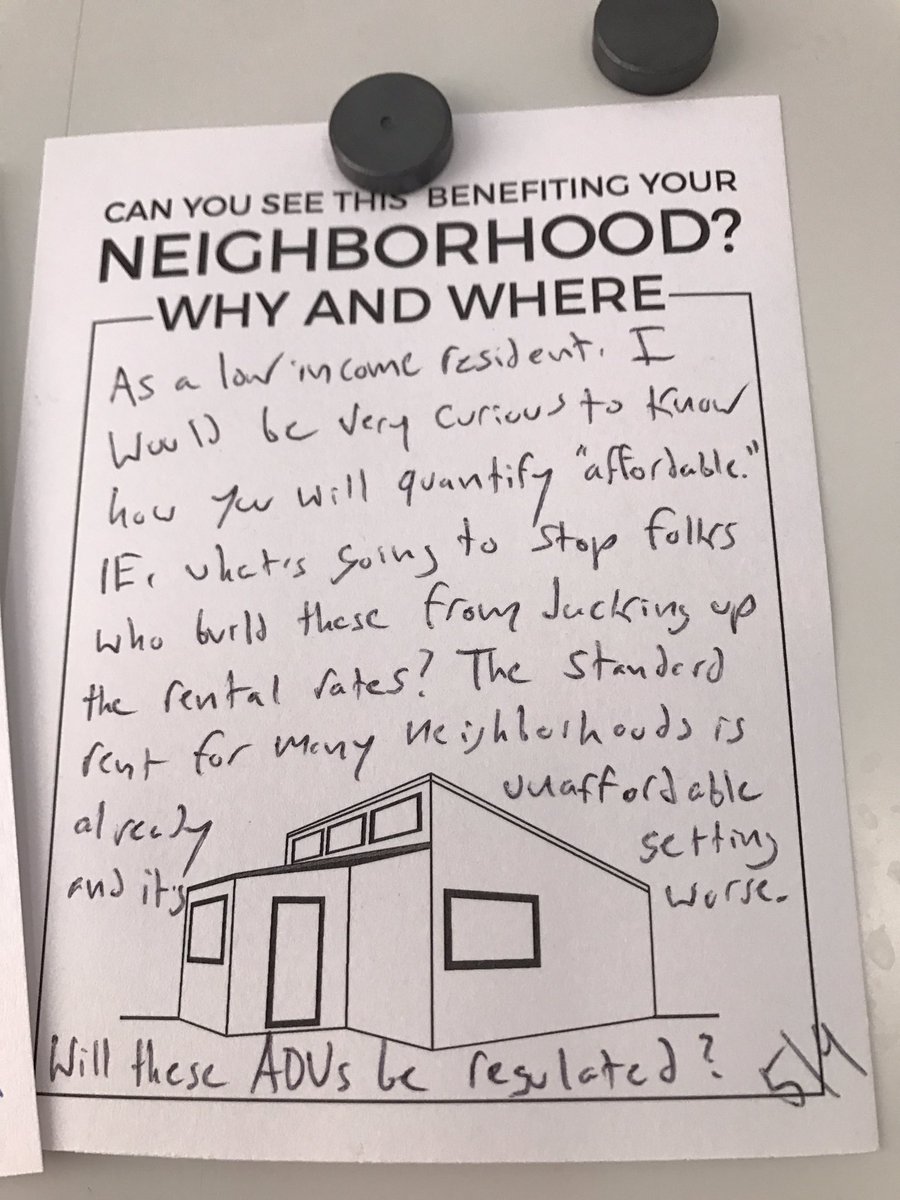 CAN YOU SEE THIS BENEFITING YOUR
NEIGHBORHOOD?
WHY AND WHERE
As a low income resident, I
would be very curious to know
how you will quantify "affordable."
IE, what's going to stop folks
who build these from jacking up
the rental rates? The standard
rent for many neighborhoods is
already unaffordable
and it's getting
worse.
Will these ADUs be regulated? 5/9